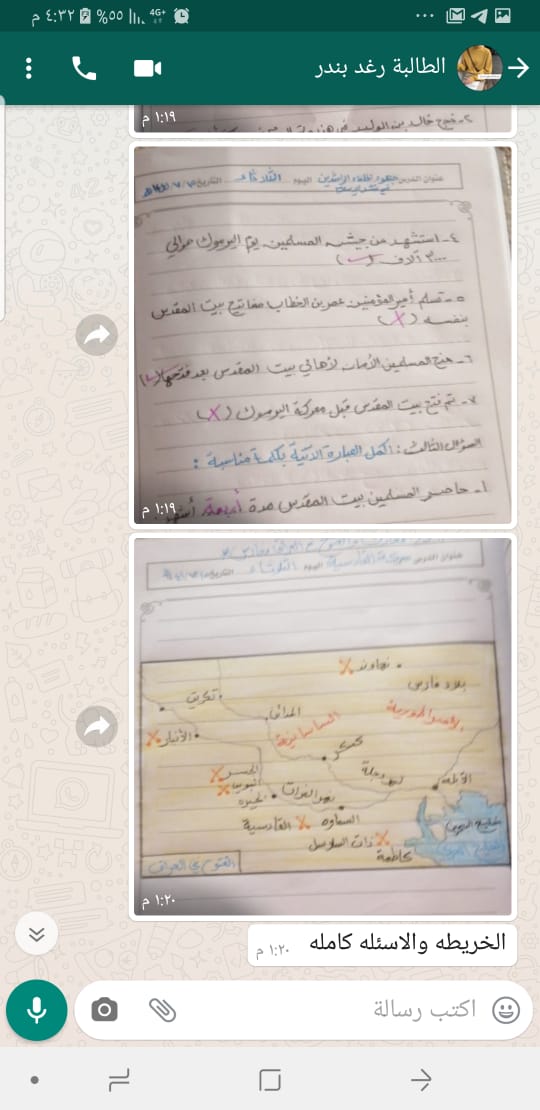 ٤:٣٢ م
%٥٥
4G+
الطالبة رغد بندر
٢- نجح خالد بن الوليد في
١:١٩ م
عنوان الدرس جهود الخلفاء الراشدين اليوم الثلاثاء التاريخ
٤- استشهد من جيش المسلمين يوم اليرموك حوالي
٣٠٠٠ آلاف (✓)
٥- تسلم أمير المؤمنين عمر بن الخطاب مفاتيح بيت المقدس
بنفسه (X)
٦- منح المسلمين الأمان لأهالي بيت المقدس بعد فتحها (✓)
٧- تم فتح بيت المقدس قبل معركة اليرموك (X)
السؤال الثالث: أكمل العبارة الآتية بكلمة مناسبة:
١- حاصر المسلمين بيت المقدس مدة أربعة أشهر
١:١٩ م
عنوان الدرس معركة القادسية اليوم الثلاثاء التاريخ
نهاوند X
بلاد فارس
تكريت
المدائن
الساسانية
الإمبراطورية
الأنبار X
كسكر
نهر دجلة
الجسر X
البويب X
الأبلة
الحيرة
نهر الفرات
السماوه
X القادسية
X ذات السلاسل
كاظمة
الخليج العربي
الفتوح في العراق
١:٢٠ م
الخريطه والاسئله كامله
١:٢٠ م
اكتب رسالة